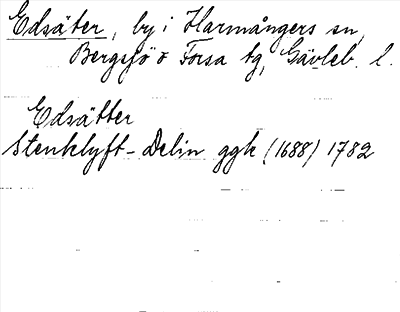 Edsäter, by i Harmångers sn,
Bergsjö o Forsa tg, Gävleb. l.
Edsätter
Stenklyft-Delin ggk (1688) 1782